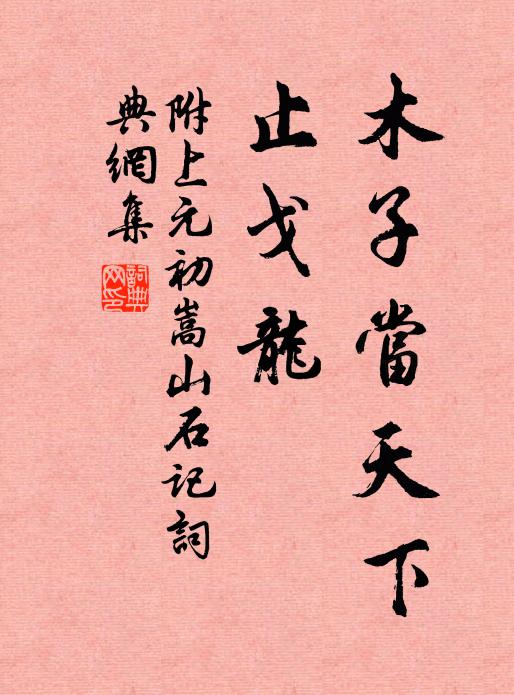 木子當天下
止戈龍
附上元初嵩山石記詞
典網集
詞典網印